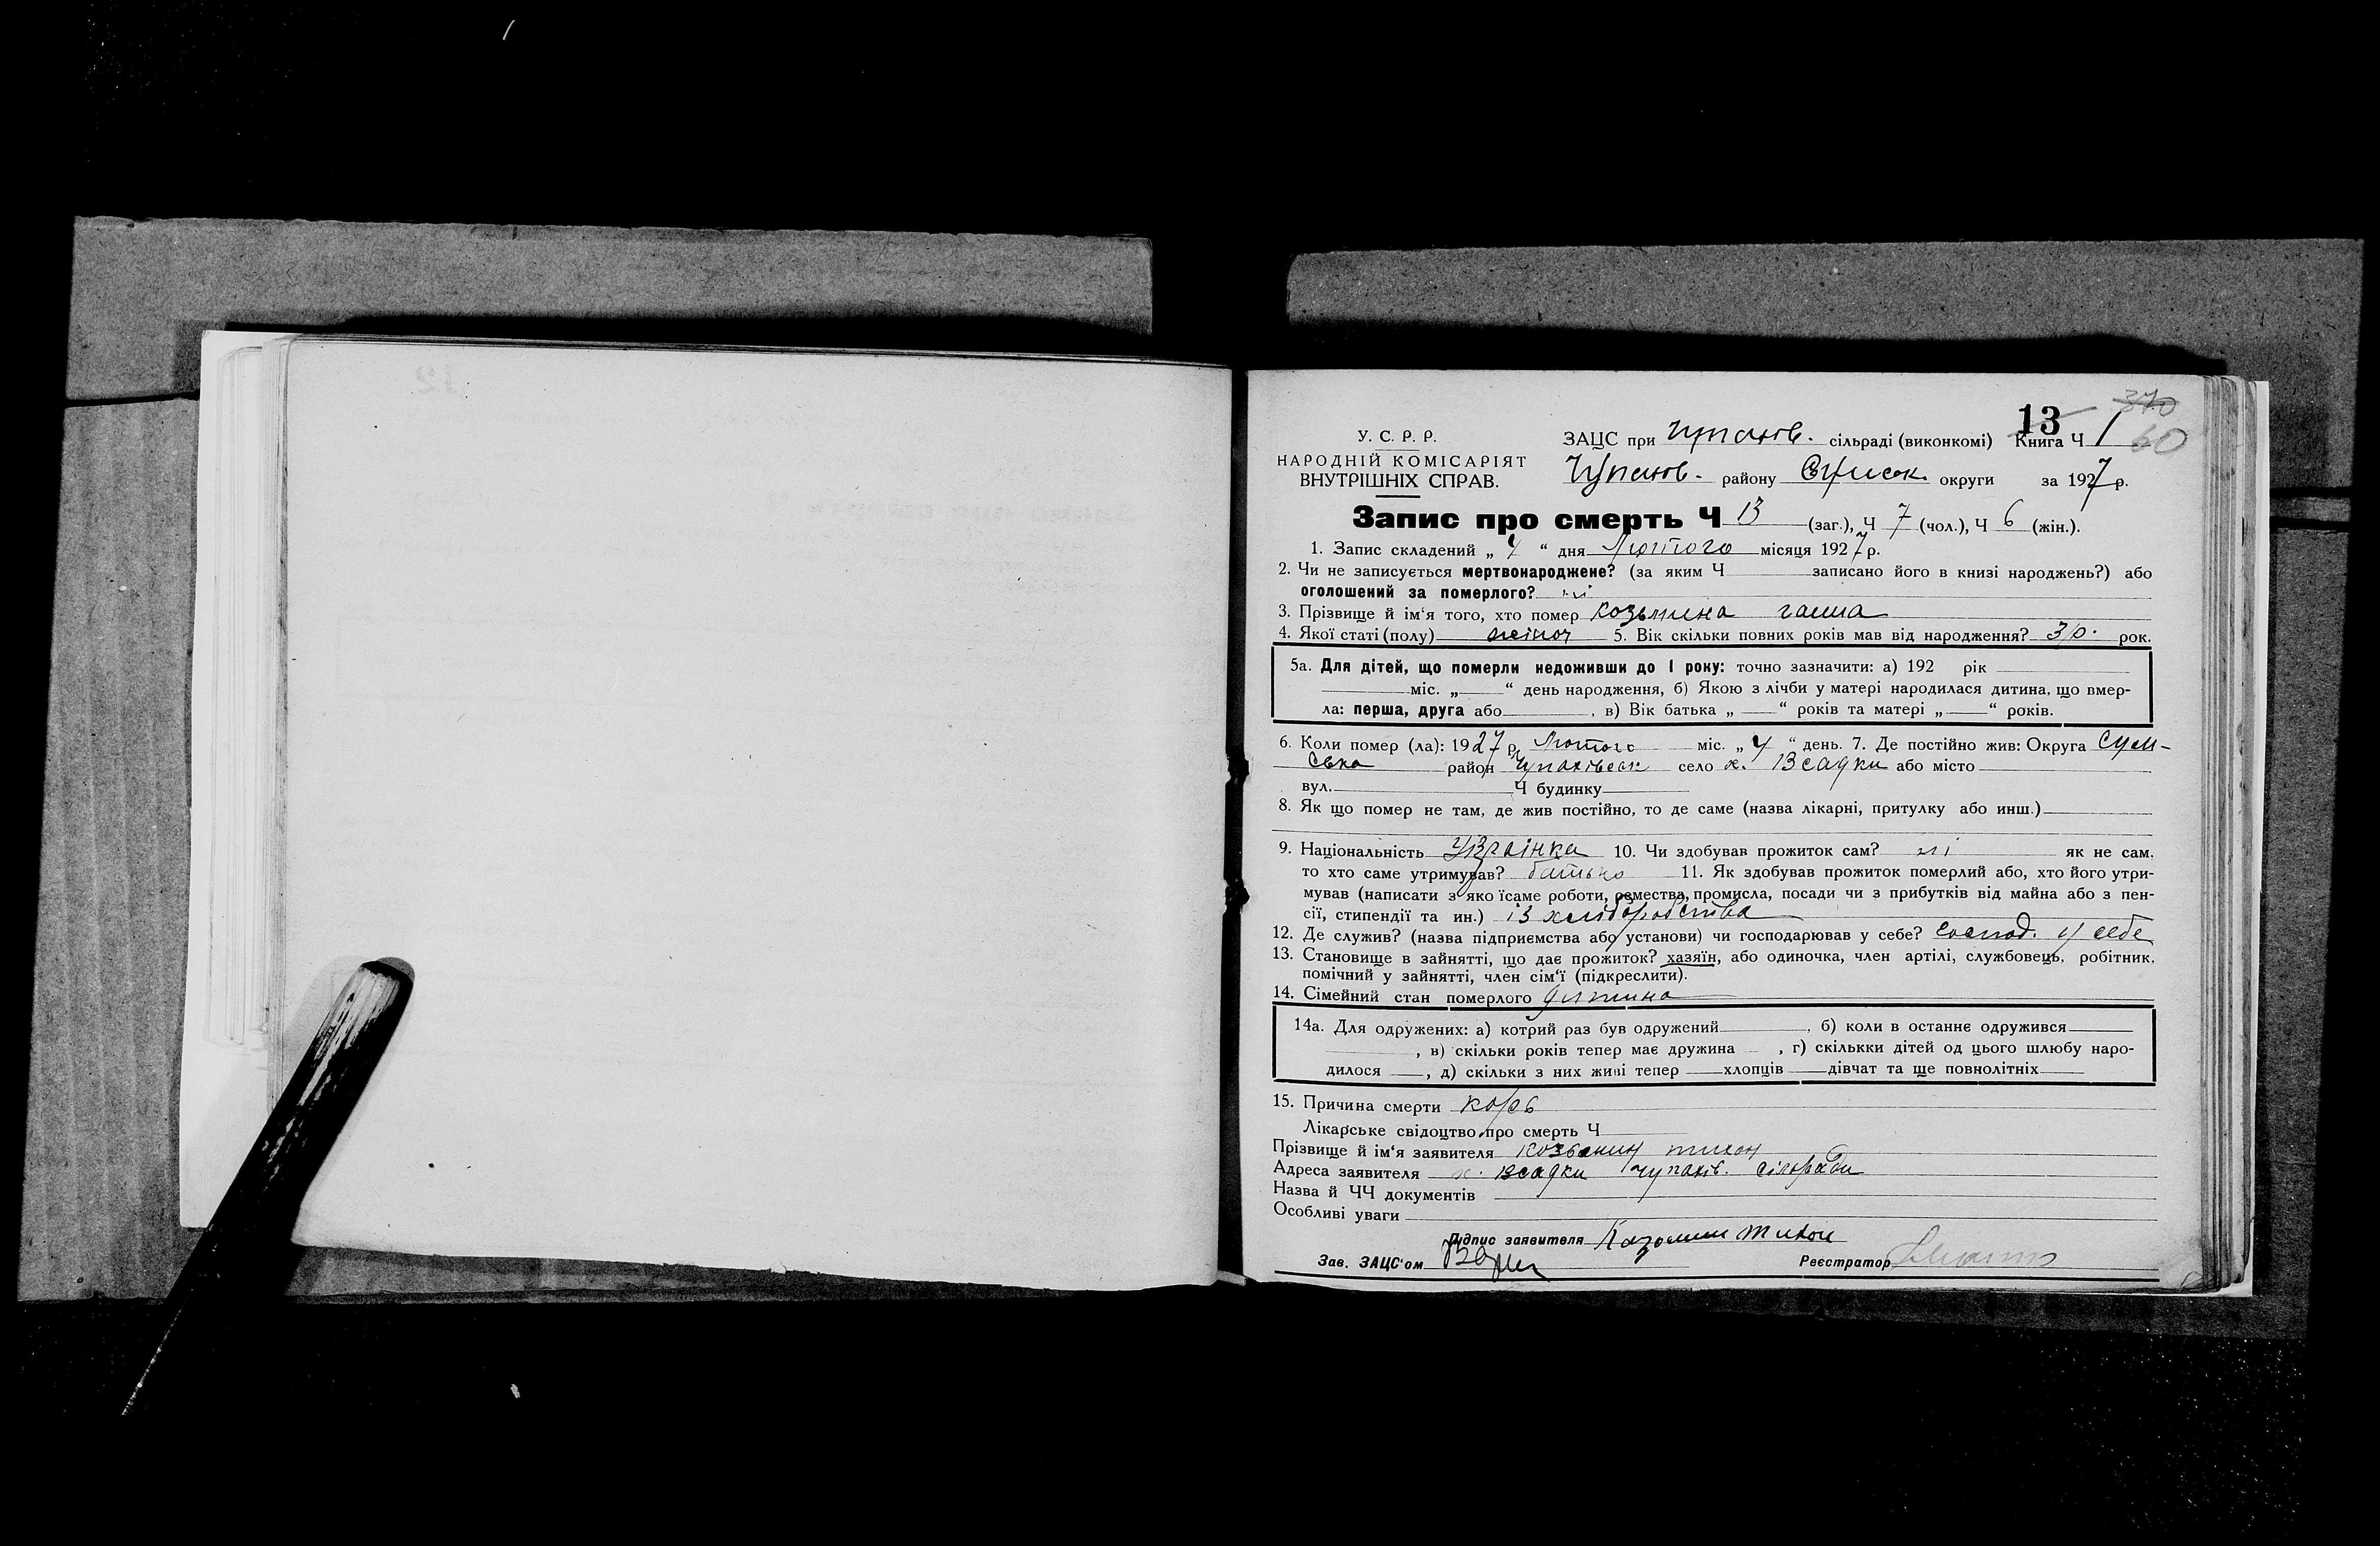 370
13
У. С. Р. Р.
НАРОДНІЙ КОМІСАРІЯТ
ВНУТРІШНІХ СПРАВ.
ЗАЦС при Чупахів. сільраді (виконкомі) Книга Ч 1 60
Чупахів. району Сумськ. округи за 1927 р.
Запис про смерть Ч 13 (заг.), Ч 7 (чол.), Ч 6 (жін.).
1. Запис складений „ 4 “ дня Лютого місяця 1927 р.
2. Чи не записується мертвонароджене? (за яким Ч записано його в книзі народжень?) або
оголошений за померлого? ні
3. Прізвище й ім‘я того, хто помер Козьмина Ганна
4. Якої статі (полу) жіноч 5. Вік скільки повних років мав від народження? 3 р. рок.
5а. Для дітей, що померли недоживши до І року: точно зазначити: а) 192 рік
міс. „ “ день народження, б) Якою з лічби у матері народилася дитина, що вмер-
ла: перша, друга або , в) Вік батька „ “ років та матері „ “ років.
6. Коли помер (ла): 1927 р. Лютого міс. „ 4 “ день. 7. Де постійно жив: Округа Сум-
ська район Чупахівськ село х. Всадки або місто
вул. Ч будинку
8. Як що помер не там, де жив постійно, то де саме (назва лікарні, притулку або инш.)
9. Національність Українка 10. Чи здобував прожиток сам? ні як не сам,
то хто саме утримував? батько 11. Як здобував прожиток померлий або, хто його утри-
мував (написати з яко їсаме роботи, ремества, промисла, посади чи з прибутків від майна або з пен-
сії, стипендії та ин.) із хліборобства
12. Де служив? (назва підприємства або установи) чи господарював у себе? господ. у себе
13. Становище в зайнятті, що дає прожиток? хазяїн, або одиночка, член артілі, службовець, робітник,
помічний у зайнятті, член сім‘ї (підкреслити).
14. Сімейний стан померлого дитина
14а. Для одружених: а) котрий раз був одружений , б) коли в останнє одружився
, в) скільки років тепер має дружина , г) скількки дітей од цього шлюбу наро-
дилося , д) скільки з них живі тепер хлопців дівчат та ще повнолітніх
15. Причина смерти корь
Лікарське свідоцтво про смерть Ч
Прізвище й ім‘я заявителя Козьмин Тихон
Адреса заявителя х. Всадки Чупахів. сільради
Назва й ЧЧ документів
Особливі уваги
Підпис заявителя Козьмин Тихон
Зав. ЗАЦС‘ом Реєстратор